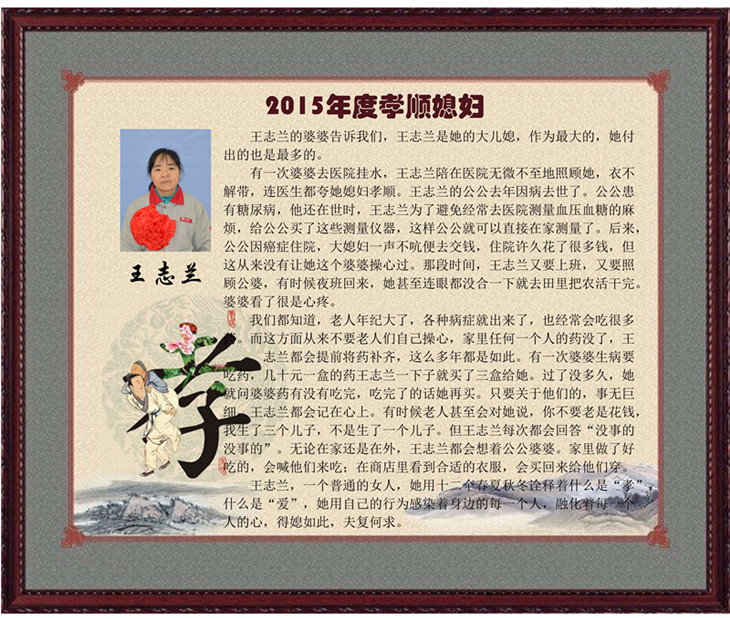 2015年度孝顺媳妇
王志兰的婆婆告诉我们，王志兰是她的大儿媳，作为最大的，她付
出的也是最多的。
有一次婆婆去医院挂水，王志兰陪在医院无微不至地照顾她，衣不
解带，连医生都夸她媳妇孝顺。王志兰的公公去年因病去世了。公公患
有糖尿病，他还在世时，王志兰为了避免经常去医院测量血压血糖的麻
烦，给公公买了这些测量仪器，这样公公就可以直接在家测量了。后来，
公公因癌症住院，大媳妇一声不吭便去交钱，住院许久花了很多钱，但
这从来没有让她这个婆婆操心过。那段时间，王志兰又要上班，又要照
顾公婆，有时候夜班回来，她甚至连眼都没合一下就去田里把农活干完。
婆婆看了很是心疼。
王志兰
我们都知道，老人年纪大了，各种病症就出来了，也经常会吃很多
。而这方面从来不要老人们自己操心，家里任何一个人的药没了，王
志兰都会提前将药补齐，这么多年都是如此。有一次婆婆生病要
吃药，几十元一盒的药王志兰一下子就买了三盒给她。过了没多久，她
就问婆婆药有没有吃完，吃完了的话她再买。只要关于他们的，事无巨
细，王志兰都会记在心上。有时候老人甚至会对她说，你不要老是花钱，
我生了三个儿子，不是生了一个儿子。但王志兰每次都会回答“没事的
没事的”。无论在家还是在外，王志兰都会想着公公婆婆。家里做了好
吃的，会喊他们来吃；在商店里看到合适的衣服，会买回来给他们穿。
王志兰，一个普通的女人，她用十二个春夏秋冬诠释着什么是“孝”，
什么是“爱”，她用自己的行为感染着身边的每一个人，融化着每一个
人的心，得媳如此，夫复何求。
孝